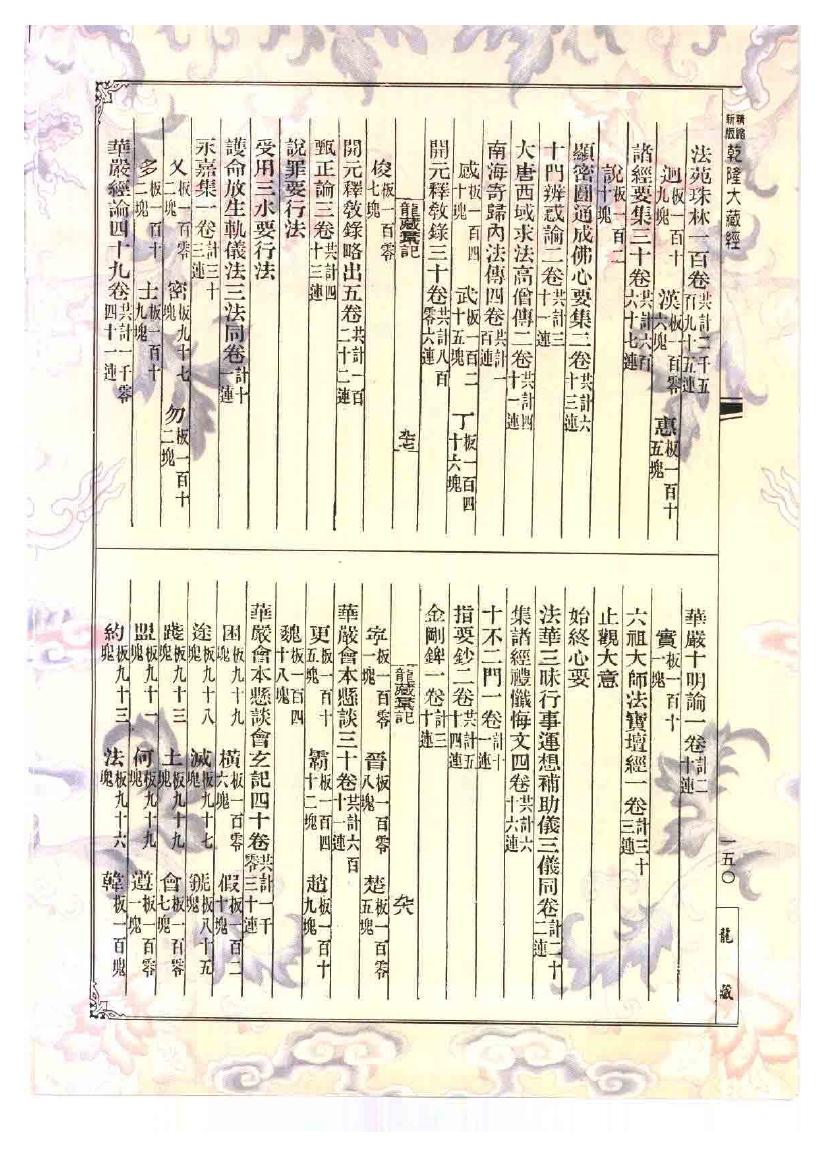 精縮新版 乾隆大藏經
法苑珠林一百卷共計二千五百九十五連
迥板一百十九塊 漢板一百零六塊 惠板一百十五塊
諸經要集三十卷共計六百六十七連
說板一百二十塊
顯密圓通成佛心要集二卷共計六十三連
十門辨惑論二卷共計三十一連
大唐西域求法高僧傳二卷共計四十一連
南海寄歸內法傳四卷共計一百連
感板一百四十塊 武板一百二十五塊 丁板一百四十六塊
開元釋教錄三十卷共計八百零六連
龍藏彙記 卆七
俊板一百零七塊
開元釋教錄略出五卷共計一百二十二連
甄正論三卷共計四十三連
說罪要行法
受用三水要行法
護命放生軌儀法三法同卷計十一連
永嘉集一卷計三十三連
乂板一百零二塊 密板九十七塊 勿板一百十二塊
多板一百十二塊 士板一百十九塊
華嚴經論四十九卷共計一千零四十一連
華嚴十明論一卷計二十連
實板一百十一塊
六祖大師法寶壇經一卷計三十三連
止觀大意
始終心要
法華三昧行事運想補助儀三儀同卷計二十二連
集諸經禮懺悔文四卷共計六十六連
十不二門一卷計十一連
指要鈔二卷共計五十四連
金剛錍一卷計三十連
龍藏彙記 卆八
寧板一百零一塊 晉板一百零八塊 楚板一百零五塊
華嚴會本懸談三十卷共計六百十一連
更板一百十五塊 霸板一百四十二塊 趙板一百十九塊
魏板一百四十八塊
華嚴會本懸談會玄記四十卷共計一千零三十連
困板九十九塊 橫板一百零六塊 假板一百二十塊
途板九十八塊 滅板九十七塊 虢板八十五塊
踐板九十三塊 土板九十九塊 會板一百零七塊
盟板九十一塊 何板九十九塊 遵板一百零一塊
約板九十三塊 法板九十六塊 韓板一百塊
一五〇
龍藏